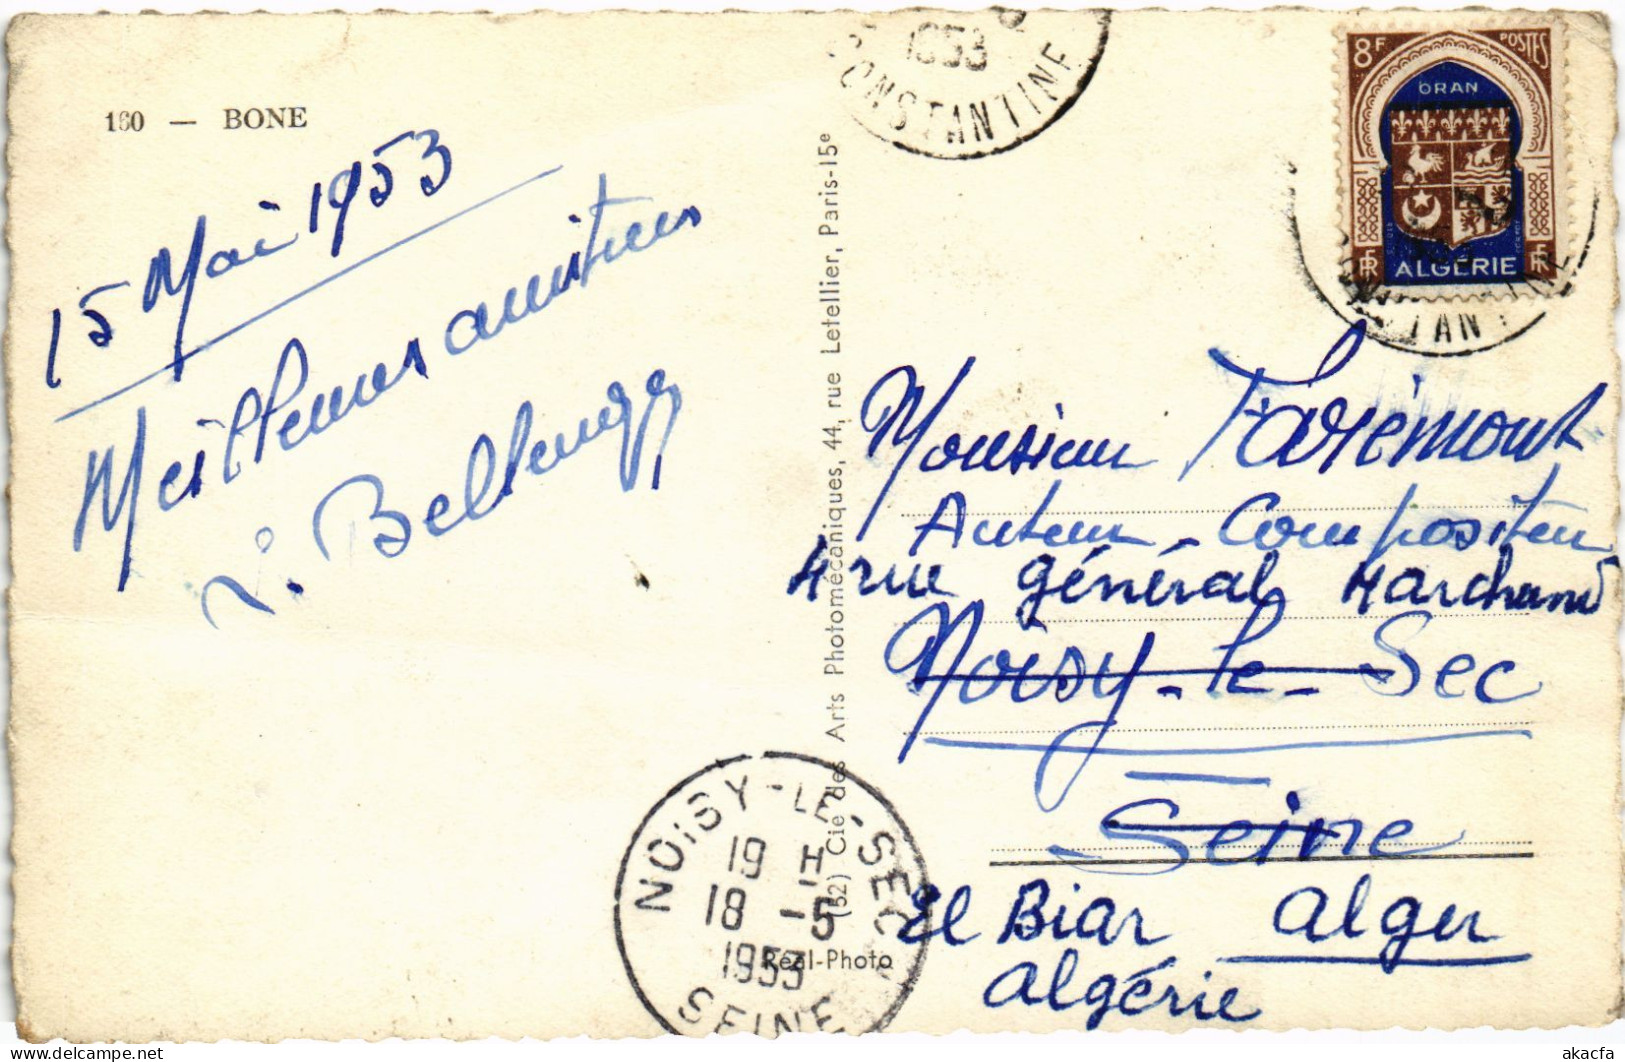 160 — BONE
15 Mai 1953
Meilleures amitiés
L. Bellenger
(52) Cie des Arts Photomécaniques, 44, rue Letellier, Paris-15e
Réal-Photo
1953
CONSTANTINE
8F POSTES
ORAN
RF ALGERIE RF
CONSTANTINE
Monsieur
Auteur-Compositeur
4 rue général Marchand
Noisy-le-Sec
Seine
El Biar Alger
Algérie
NOISY-LE-SEC
19 H
18 - 5
1953
SEINE
akacfa
delcampe.net